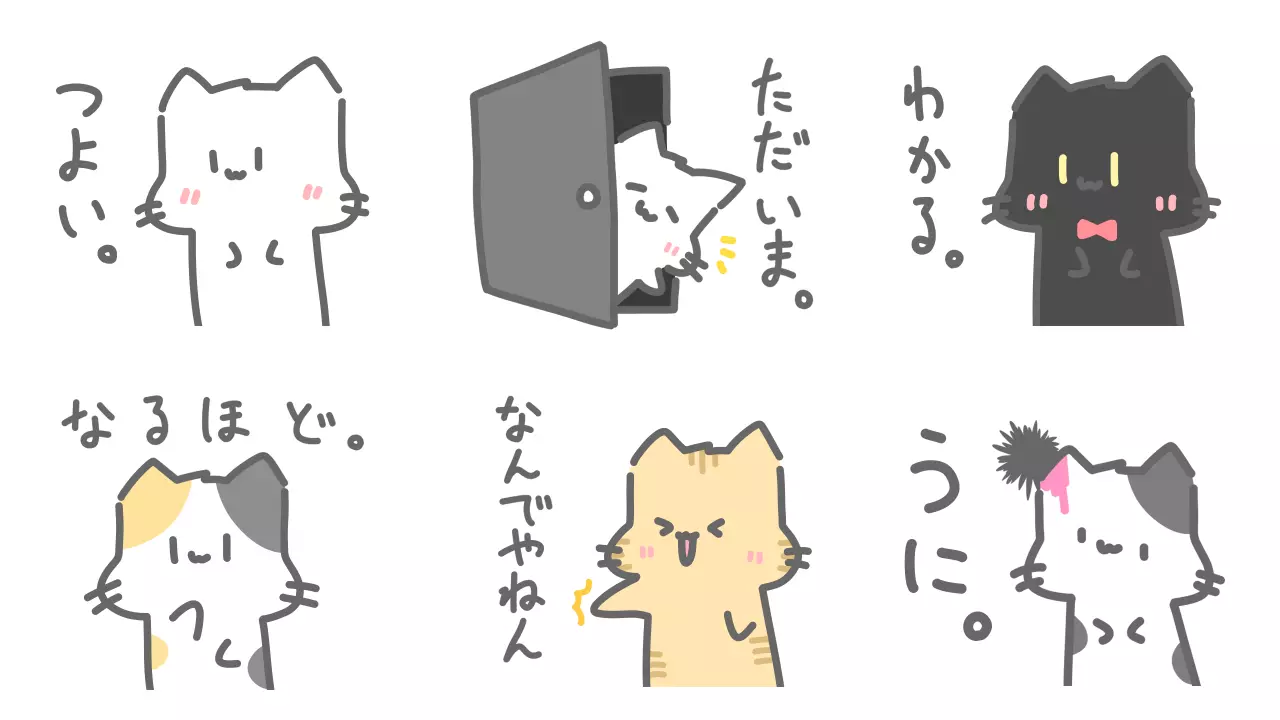 つよい。
ただいま。
わかる。
なるほど。
なんでやねん
うに。